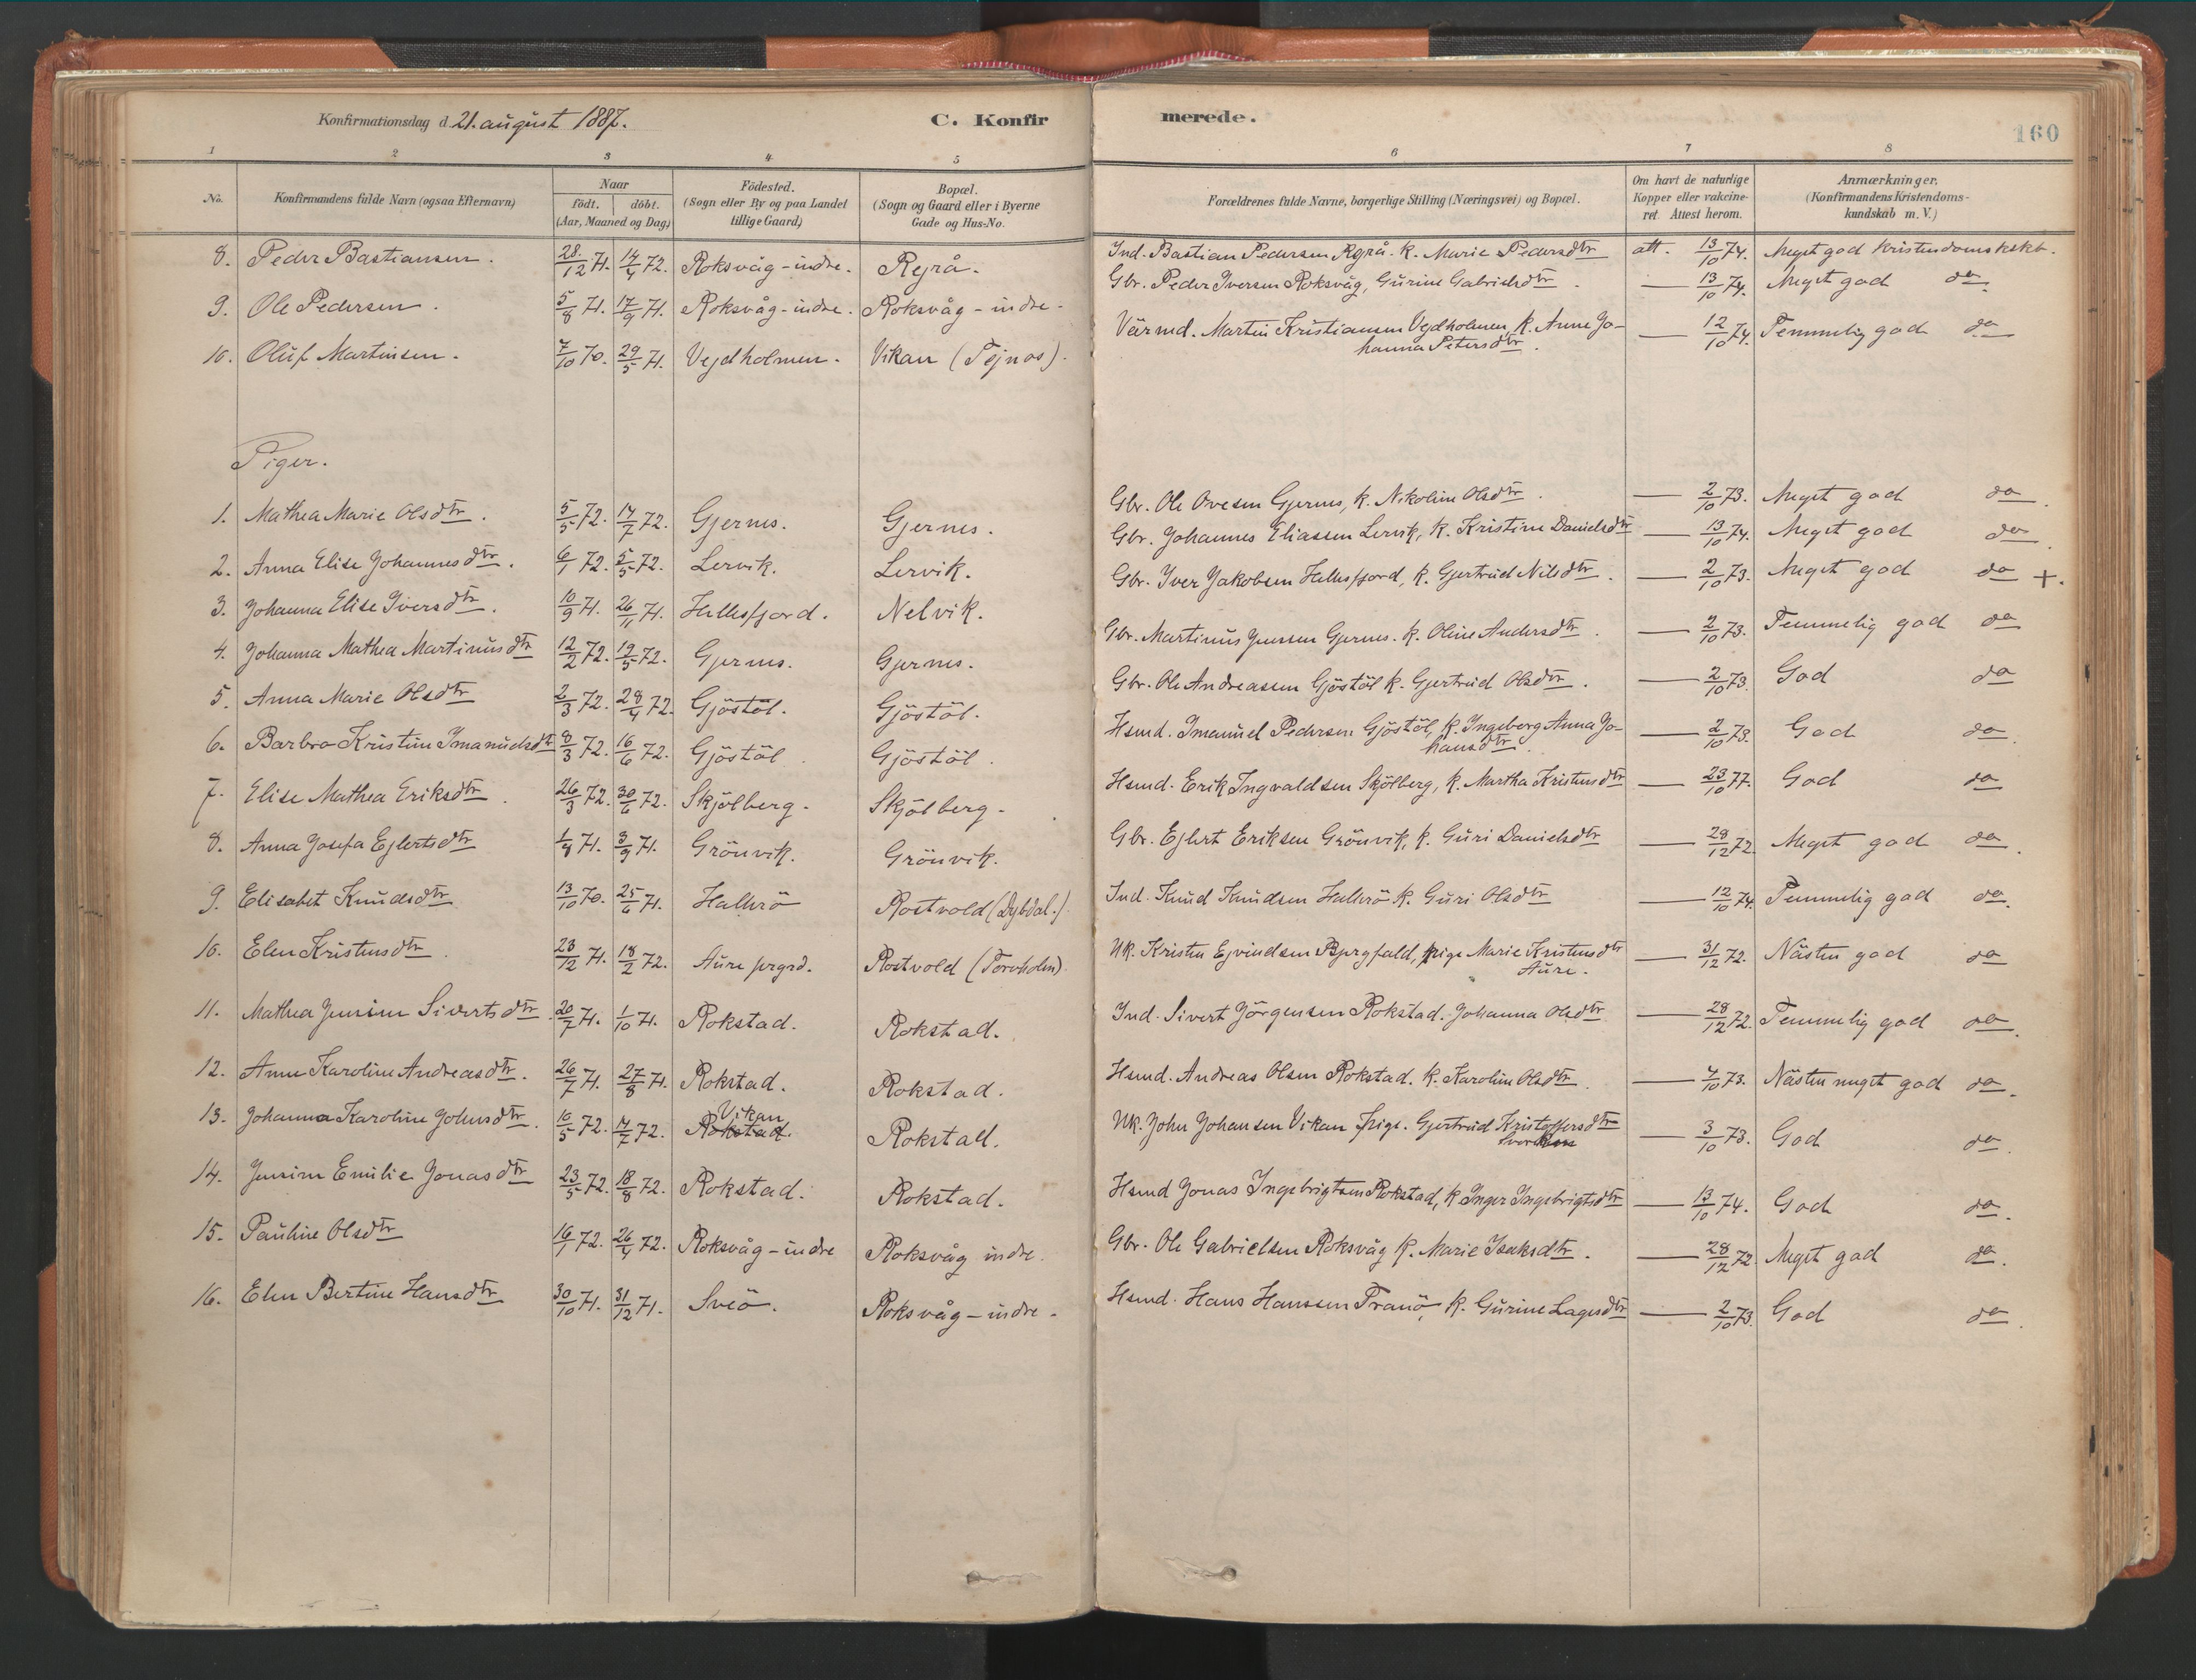 Konfirmationsdag d. 21. august 1887. C. Konfir merede. 160
1 2 3 4 5 6 7 8
No. Konfirmandens fulde Navn (ogsaa Efternavn) Naar födt. döbt. (Aar, Maaned og Dag) Födested. (Sogn eller By og paa Landet tillige Gaard) Bopæl. (Sogn og Gaard eller i Byerne Gade og Hus-No. Forældrenes fulde Navne, borgerlige Stilling (Næringsvei) og Bopæl. Om havt de naturlige Kopper eller vakcineret. Attest herom. Anmærkninger. (Konfirmandens Kristendomskundskab m. V.)
8. Peder Bastiansen. 28/12 71. 14/4 72. Roksvåg-indre. Rejrå. Ind. Bastian Pedersen Rejrå. k. Marie Pedersdtr att. 13/10 74. Meget god Kristendomskskb.
9. Ole Pedersen. 5/8 71. 17/9 71. Roksvåg-indre. Roksvåg-indre. Gbr. Peder Iversen Roksvåg, Gurine Gabrielsdtr. — 13/10 74. Meget god do
10. Oluf Martinsen. 7/10 70. 29/5 71. Vejdholmen. Vikan (Tejnæs). Värmd. Martin Kristiansen Vejdholmen, k. Anne Jo-
hanna Petersdtr. — 12/10 74. Temmelig god do
Piger.
1. Mathea Marie Olsdtr. 5/5 72. 14/7 72. Gjernes. Gjernes. Gbr. Ole Ovesen Gjernes, k. Nikoline Olsdtr. — 2/10 73. Meget god do.
2. Anna Elise Johannesdtr. 6/1 72. 5/5 72. Lervik. Lervik. Gbr. Johannes Eliassen Lervik, k. Kristine Danielsdtr — 13/10 74. Meget god do.
3. Johanna Elise Iversdtr. 10/9 71. 26/11 71. Hellesfjord. Nelvik. Gbr. Iver Jakobsen Hellesfjord, k. Gjertrud Nilsdtr. — 2/10 73. Meget god do +.
4. Johanna Mathea Martinusdtr 12/2 72. 19/5 72. Gjernes. Gjernes. Gbr. Martinus Jenssen Gjernes. k. Oline Andersdtr. — 2/10 73. Temmelig god do
5. Anna Marie Olsdtr 2/3 72. 28/4 72. Gjöstöl. Gjöstöl. Gbr. Ole Andreassen Gjöstöl k. Gjertrud Olsdtr. — 2/10 73. God do
6. Barbro Kristine Imanuelsdtr 8/3 72. 16/6 72. Gjöstöl. Gjöstöl. Hsmd. Imanuel Pedersen Gjöstöl, k. Ingeborg Anna Jo-
hansdtr. — 2/10 73. God do.
7. Elise Mathea Eriksdtr. 26/3 72. 30/6 72. Skjölberg. Skjölberg. Hsmd. Erik Ingvaldsen Skjölberg, k. Martha Kristensdtr — 23/10 77. God do
8. Anna Josefa Ejlertsdtr 1/8 71. 3/9 71. Grönvik. Grönvik. Gbr. Ejlert Eriksen Grönvik, k. Guri Danielsdtr — 28/12 72. Meget god do.
9. Elisabet Knudsdtr 13/10 70. 25/6 71. Hallerö Rostvold (Dybdal.). Ind. Knud Knudsen Hallerö k. Guri Olsdtr — 12/10 74. Temmelig god do.
10. Elen Kristensdtr. 23/12 71. 18/2 72. Aure prgrd. Rostvold (Torvholm). Uk. Kristen Ejvindsen Bjergfald, pige Marie Kristensdtr
Aure. — 31/12 72. Nästen god do
11. Mathea Jensine Sivertsdtr. 20/7 71. 1/10 71. Rokstad. Rokstad. Ind. Sivert Jörgensen Rokstad. Johanna Olsdtr — 28/12 72. Temmelig god do.
12. Anne Karoline Andreasdtr. 26/7 71. 27/8 71. Rokstad. Rokstad. Hsmd. Andreas Olsen Rokstad. k. Karoline Olsdtr. — 4/10 73. Nästen meget god do.
13. Johanna Karoline Johnsdtr. 10/5 72. 14/7 72. Vikan
Rokstad. Rokstad. Uk. John Johansen Vikan pige. Gjertrud Kristoffersdtr — 3/10 73. God do.
14. Jensine Emilie Jonasdtr 23/5 72. 18/8 72. Rokstad. Rokstad. Hsmd Jonas Ingebrigtsen Rokstad, k Inger Ingebrigtsdtr — 13/10 74. God do.
15. Pauline Olsdtr 16/1 72. 26/4 72. Roksvåg-indre Roksvåg indre. Gbr. Ole Gabrielsen Roksvåg k. Marie Isaksdtr. — 28/12 72. Meget god do.
16. Elen Bertine Hansdtr 30/10 71. 31/12 71. Sveö. Roksvåg-indre. Hsmd. Hans Hanssen Tranö, k. Gurine Lagesdtr — 2/10 73. God do.